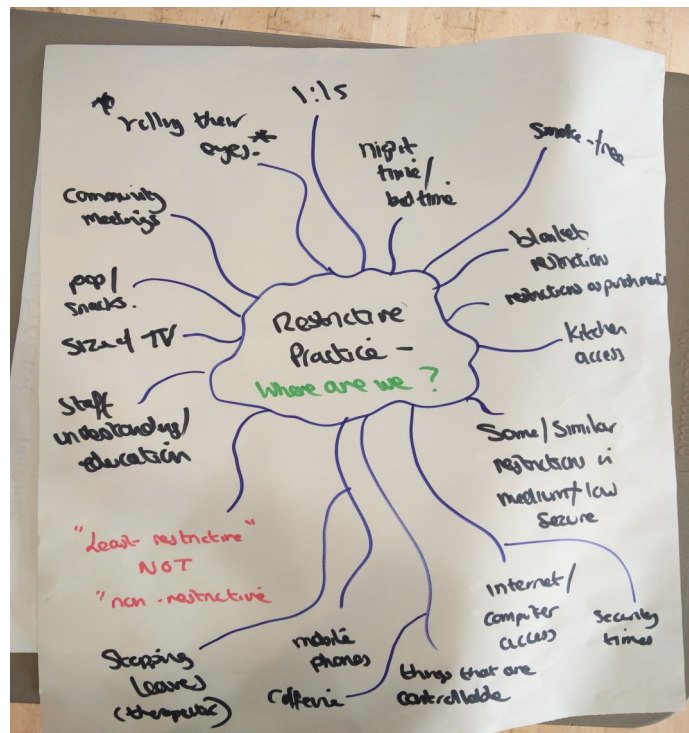 Restrictive
Practice -
Where are we?
1:15
*rolling their
eyes.*
night
time/
bedtime
Smoke-free
blanket
restriction
restrictions as punishment
kitchen
access
Same/Similar
restriction in
medium/low
Secure
Security
times
internet/
computer
access
things that are
controllable
Caffeine
mobile
phones
Stopping
leaves
(therapeutic)
"Least restrictive"
NOT
"non-restrictive
Staff
understanding/
education
Size of TV
pop/
snacks.
Community
meetings